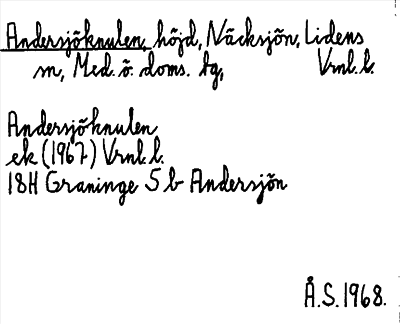 Andersjöknulen, höjd, Näcksjön, Lidens
sn, Med. ö. doms. tg, Vrnl.l.
Andersjöknulen
ek (1967) Vrnl.l.
18H Graninge 5 b Andersjön
Å.S. 1968.